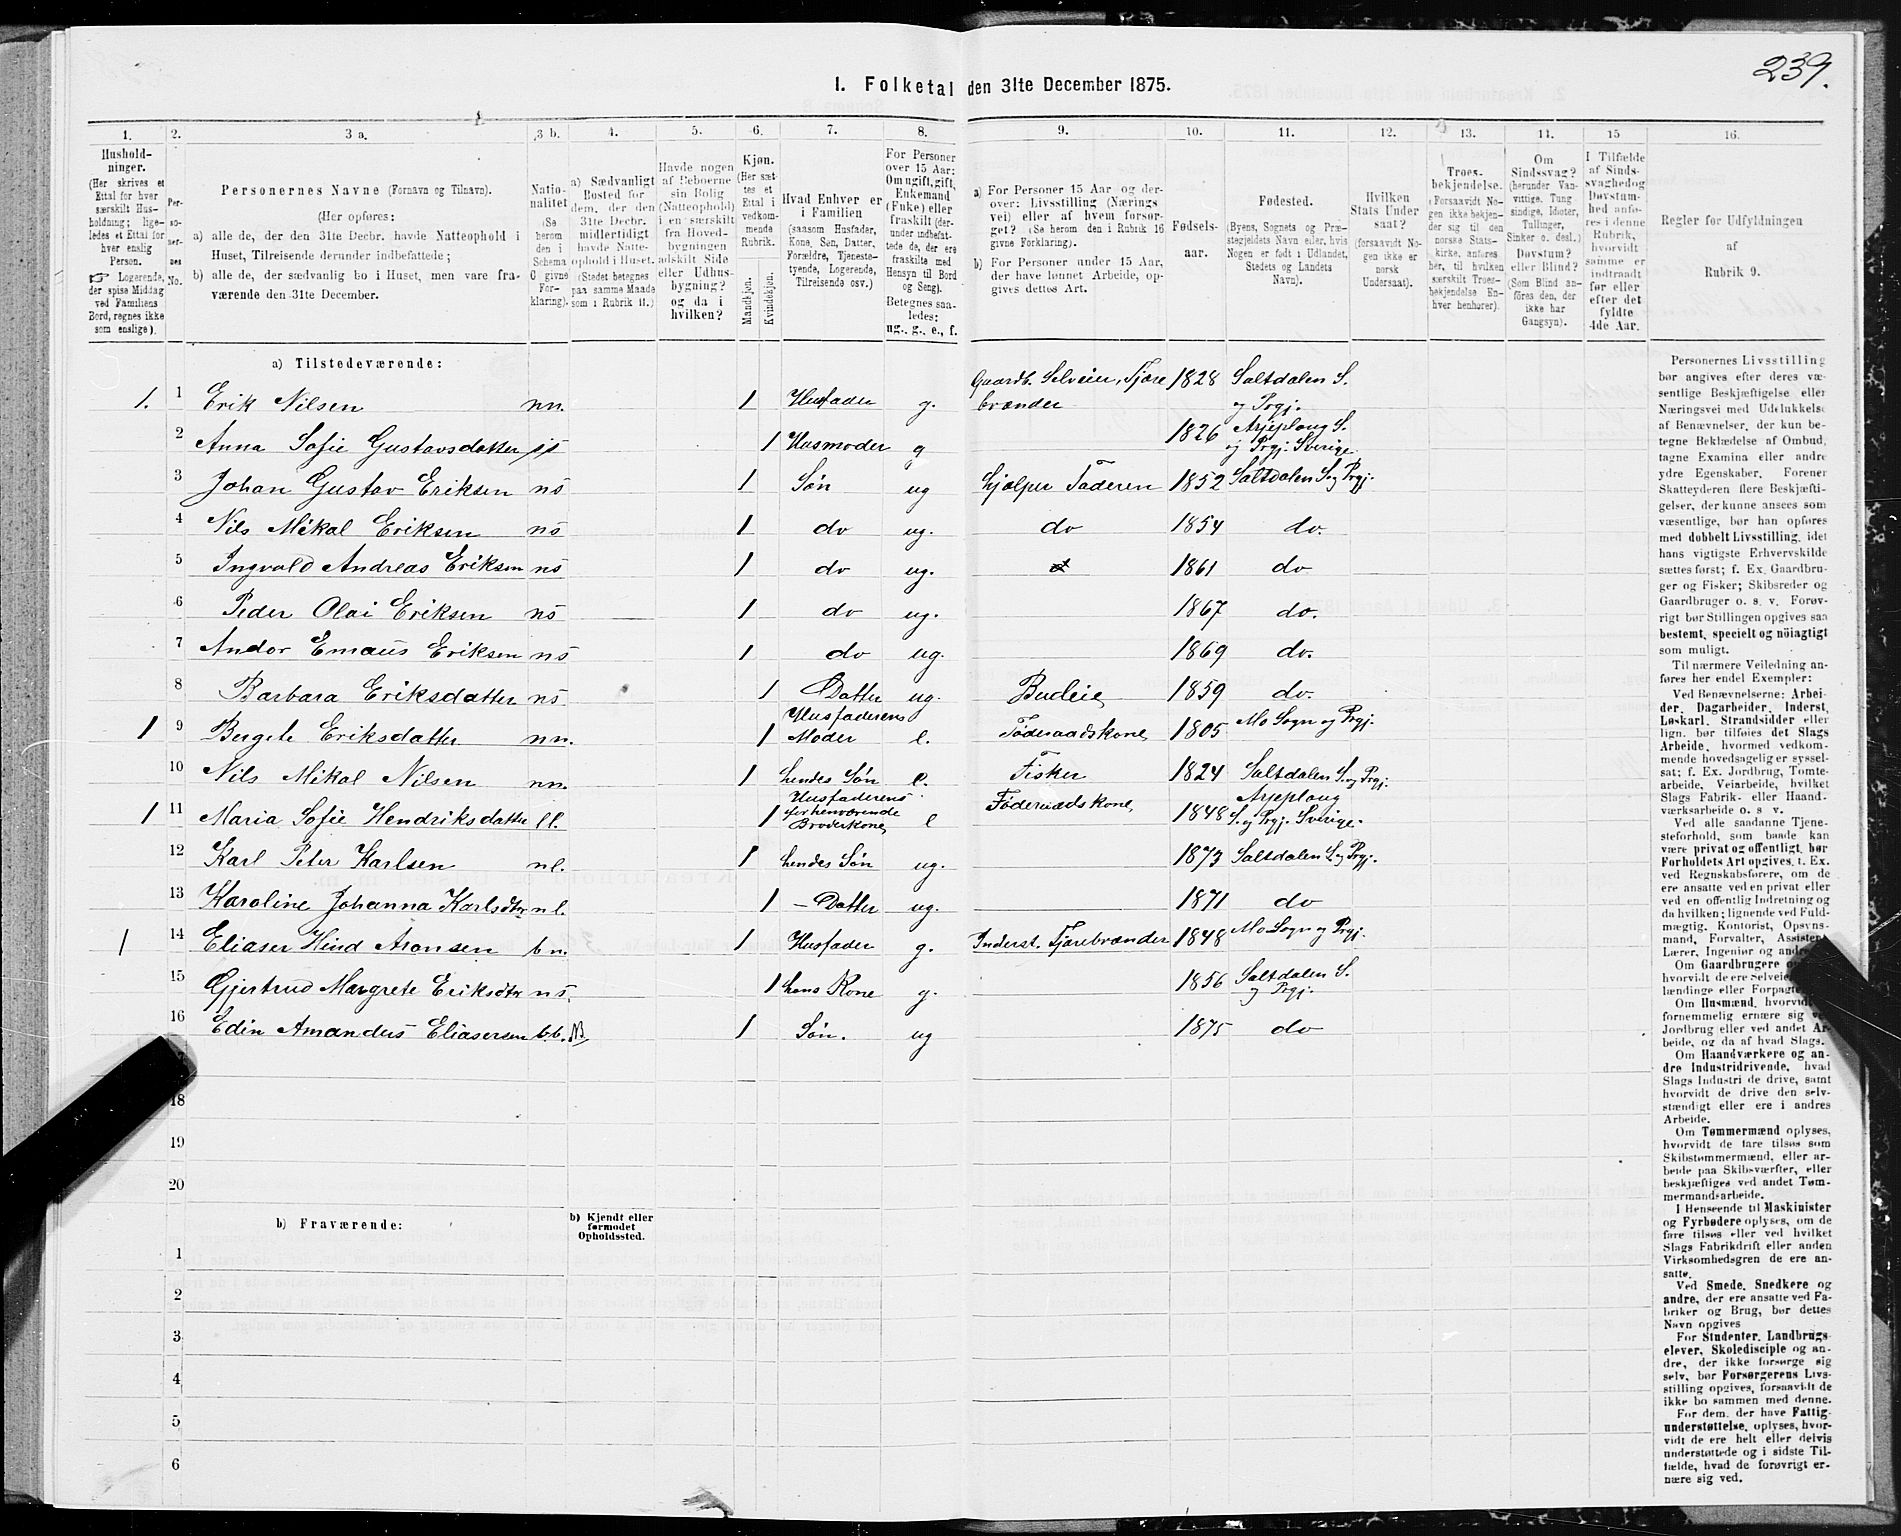 239.
1. Folketal den 31te December 1875.
1. 2. 3 a. 3 b. 4. 5. 6. 7. 8. 9. 10. 11. 12. 13. 14. 15 16.
Husholdninger.
(Her skrives et Ettal for hver særskilt Husholdning; ligeledes et Ettal for hver enslig Person.
☞ Logerende, der spise Middag ved Familiens Bord, regnes ikke som enslige).
Personernes No.
Personernes Navne (Fornavn og Tilnavn).
(Her opføres:
a) alle de, der den 31te Decbr. havde Natteophold i Huset, Tilreisende derunder indbefattede;
b) alle de, der sædvanlig bo i Huset, men vare fraværende den 31te December.
Nationalitet (Se herom den i Schema C givne Forklaring).
a) Sædvanligt Bosted for dem, der den 31te Decbr. midlertidigt havde Natteophold i Huset. (Stedet betegnes paa samme Maade som i Rubrik 11.)
Havde nogen af Beboerne sin Bolig (Natteophold) i en særskilt fra Hovedbygningen adskilt Side eller Udhusbygning? og da i hvilken?
Kjøn. (Her sættes et Ettal i vedkommende Rubrik.
Mandkjøn. Kvindekjøn.
Hvad Enhver er i Familien (saasom Husfader, Kone, Søn, Datter, Forældre, Tjenestetyende, Logerende, Tilreisende osv.)
For Personer over 15 Aar: Om ugift, gift, Enkemand (Enke) eller fraskilt (derunder indbefattede de, der ere fraskilte med Hensyn til Bord og Seng). Betegnes saaledes: ug., g., e., f.
a) For Personer 15 Aar og derover: Livsstilling (Næringsvei) eller af hvem forsørget? (Se herom den i Rubrik 16 givne Forklaring).
b) For Personer under 15 Aar, der have lønnet Arbeide, opgives dettes Art.
Fødselsaar.
Fødested. (Byens, Sognets og Præstegjeldets Navn eller, hvis Nogen er født i Udlandet, Stedets og Landets Navn).
Hvilken Stats Undersaat? (forsaavidt Nogen ikke er norsk Undersaat).
Troesbekjendelse. (Forsaavidt Nogen ikke bekjender sig til den norske Statskirke, anføres her, til hvilken særskilt Troesbekjendelse Enhver henhører).
Om Sindssvag? (herunder Vanvittige, Tungsindige, Idioter, Tullinger, Sinker o. desl.) Døvstum? eller Blind? (Som Blind anføres den, der ikke har Gangsyn).
I Tilfælde af Sindssvaghed og Døvstumhed anføres i denne Rubrik, hvorvidt samme er indtraadt før eller efter det fyldte 4de Aar.
Regler for Udfyldningen af Rubrik 9.
a) Tilstedeværende:
1. 1 Erik Nilsen nn. 1 Husfader g. Gaardb. Selveier, Tjærebrænder 1828 Saltdalen S. og Prgj.
2 Anna Sofie Gustavsdatter 1 Husmoder g 1826 Arjeploug S. og Prgj. Sverige.
3 Johan Gustav Eriksen ns 1 Søn ug hjælper Faderen 1852 Saltdalen S. og Prgj.
4 Nils Mikal Eriksen ns 1 do ug. do 1854 do.
5 Ingvold Andreas Eriksen ns 1 do ug. 1861 do
6 Peder Olai Eriksen ns 1 do ug. 1867 do.
7 Andor Emaus Eriksen ns 1 do ug. 1869 do.
8 Barbara Eriksdatter ns 1 Datter ug. Budeie 1859 do.
1 9 Bergete Eriksdatter nn. 1 Husfaderens Moder e. Føderaadskone 1805 Mo Sogn og Prgj.
10 Nils Mikal Nilsen nn. 1 hendes Søn e. Fisker 1824 Saltdalen S. og Prgj.
1 11 Maria Sofie Hendriksdatter ll. 1 Husfaderens forhenværende Broderkone e Føderaadskone 1848 Arjeploug S. og Prgj. Sverige.
12 Karl Peter Karlsen nl. 1 hendes Søn ug. 1873 Saltdalen S. og Prgj.
13 Karoline Johanna Karlsdtr nl. 1 – Datter ug. 1871 do
1 14 Eliaser Hind Aronsen bn. 1 Husfader g. Inderst. Tjærebrænder 1848 Mo Sogn og Prgj.
15 Gjertrud Margrete Eriksdtr ns. 1 hans Kone g. 1856 Saltdalen S. og Prgj.
16 Edin Amandus Eliasersen b.b. 1 Søn. ug 1875 do
18
19
20
b) Fraværende:
b) Kjendt eller formodet Opholdssted.
1
2
3
4
5
6
Personernes Livsstilling bør angives efter deres væsentlige Beskjæftigelse eller Næringsvei med Udelukkelse af Benævnelser, der kun betegne Beklædelse af Ombud, tagne Examina eller andre ydre Egenskaber. Forener Skatteyderen flere Beskjæftigelser, der kunne ansees som væsentlige, bør han opføres med dobbelt Livsstilling, idet hans vigtigste Erhvervskilde sættes først; f. Ex. Gaardbruger og Fisker; Skibsreder og Gaardbruger o. s. v. Forøvrigt bør Stillingen opgives saa bestemt, specielt og nöiagtigt som muligt.
Til nærmere Veiledning anføres her endel Exempler:
Ved Benævnelserne: Arbeider, Dagarbeider, Inderst, Løskarl, Strandsidder eller lign. bør tilføies det Slags Arbeide, hvormed vedkommende hovedsagelig er sysselsat; f. Ex. Jordbrug, Tomtearbeide, Veiarbeide, hvilket Slags Fabrik- eller Haandværksarbeide o. s. v.
Ved alle saadanne Tjenesteforhold, som baade kan være privat og offentligt, bør Forholdets Art opgives, t. Ex. ved Regnskabsførere, om de ere ansatte ved en privat eller ved en offentlig Indretning og da hvilken; lignende ved Fuldmægtig, Kontorist, Opsynsmand, Forvalter, Assistent, Lærer, Ingeniør og andre.
Om Gaardbrugere hvorvidt de ere Selveiere, lændinge eller Forpagtere.
Om Husmænd, hvorvidt fornemmelig ernære sig ved Jordbrug eller ved andet Arbeide, og da af hvad Slags.
Om Haandværkere og andre Industridrivende, hvad Slags Industri de drive, samt hvorvidt de drive den selvstændigt eller ere i andres Arbeide.
Om Tømmermænd oplyses, hvorvidt de fare tilsøs som Skibstømmermænd, eller arbeide paa Skibsværfter, eller beskjæftiges ved andet Tømmermandsarbeide.
I Henseende til Maskinister og Fyrbødere oplyses, om de fare tilsøs eller ved hvilket Slags Fabrikdrift eller anden Virksomhedsgren de ere ansatte.
Ved Smede, Snedkere og andre, der ere ansatte ved Fabriker og Brug, bør dettes Navn opgives
For Studenter, Landbrugselever, Skoledisciple og andre, der ikke forsørge sig selv, bør Forsørgerens Livsstilling opgives, forsaavidt de ikke bo sammen med denne.
For dem, der have Fattigunderstøttelse, oplyses, hvorvidt de ere helt eller delvis understøttede og i sidste Tilfælde, hvad de forøvrigt ernære sig ved.